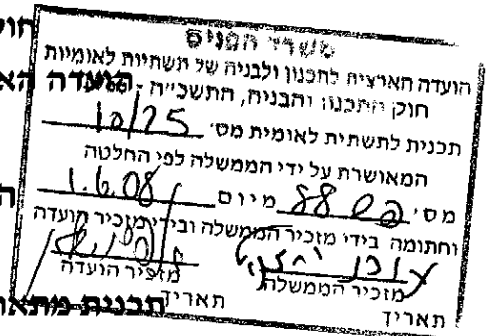 חוק
משרד הפנים
הועדה הארצית לתכנון ולבניה של תשתיות לאומיות
חוק התכנון והבניה, התשכ"ה -
הועדה הא
תכנית לתשתית לאומית מס' 10/25
המאושרת על ידי הממשלה לפי החלטה
מס' 88 מיום 1.6.08
וחתומה בידי מזכיר הממשלה ובידי מזכיר הועדה
מזכיר הממשלה מזכיר הועדה
תאריך תאריך
תכנית מתאר